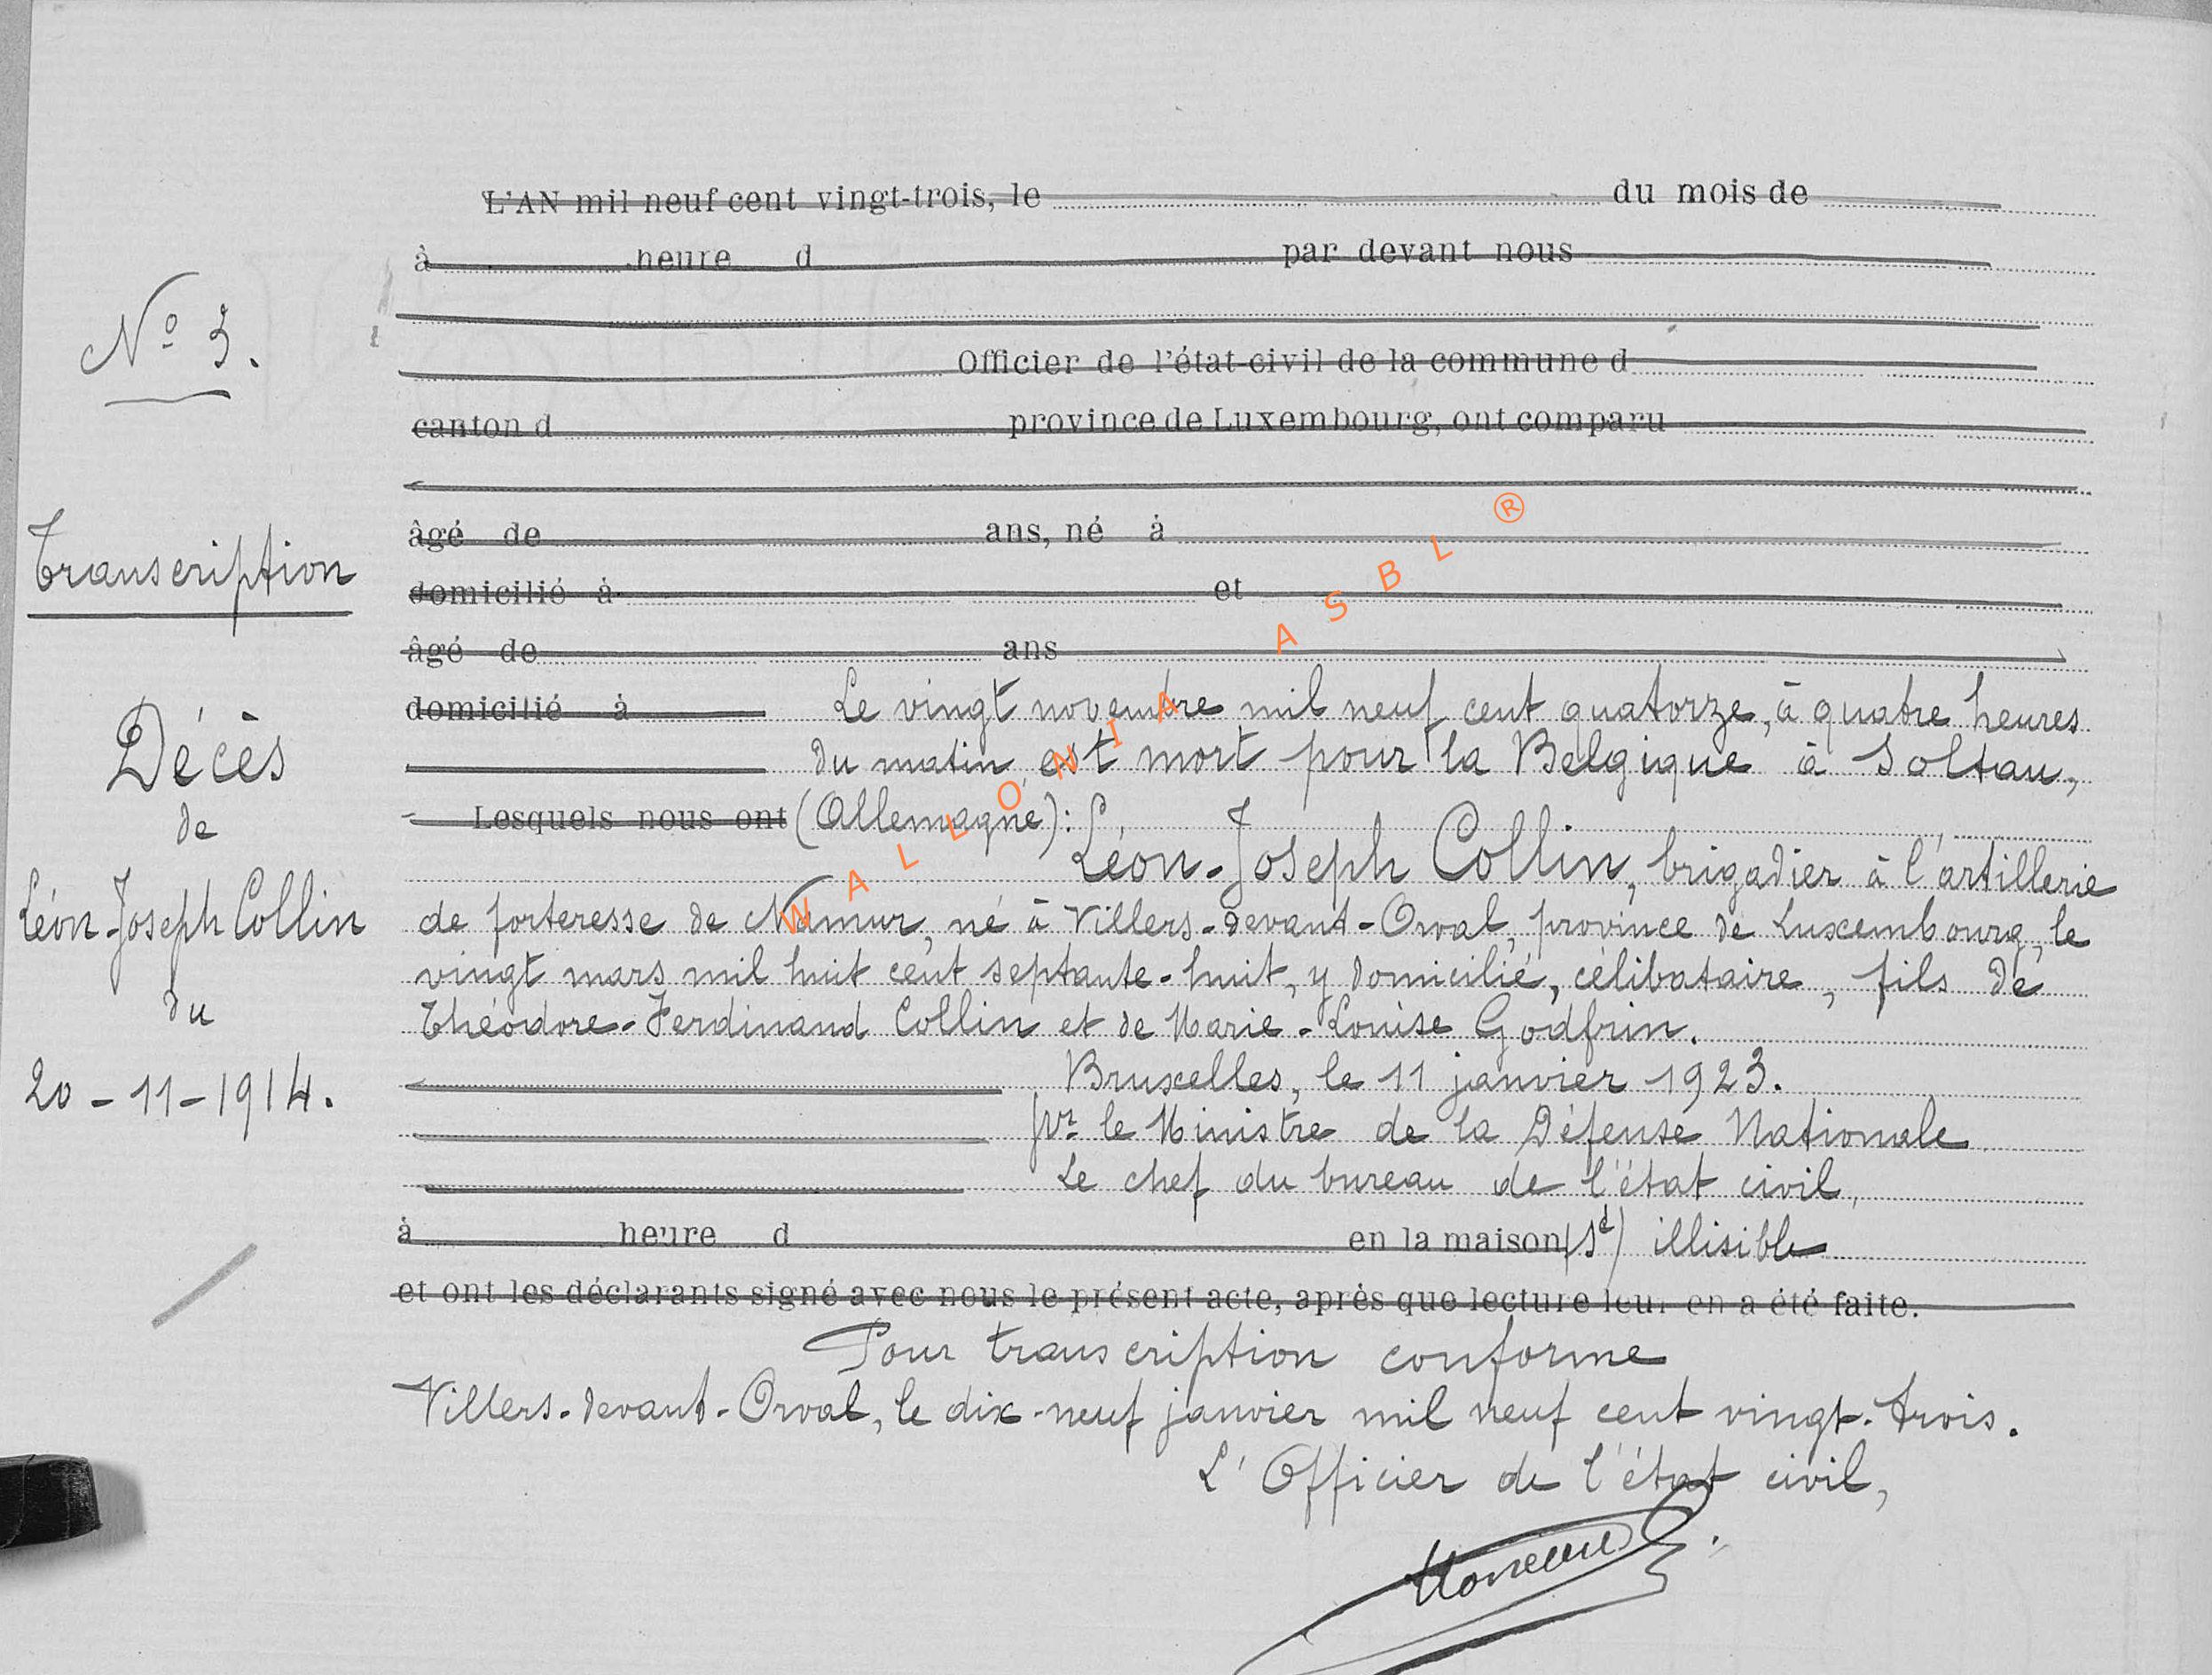 L'AN mil neuf cent vingt-trois, le du mois de
à heure d par devant nous
Officier de l'état-civil de la commune d
canton d province de Luxembourg, ont comparu
âgé de ans, né à
domicilié à et
âgé de ans
domicilié à Le vingt novembre mil neuf cent quatorze, à quatre heures
du matin est mort pour la Belgique à Soltau,
Lesquels nous ont (Allemagne):
Léon-Joseph Collin, brigadier à l'artillerie
de forteresse de Namur, né à Villers-devant-Orval, province de Luxembourg, le
vingt mars mil huit cent septante-huit, y domicilié, célibataire, fils de
Théodore-Ferdinand Collin et de Marie-Louise Godfrin.
Bruxelles, le 11 janvier 1923.
pr le Ministre de la Défense Nationale
Le chef du bureau de l'état civil,
à heure d en la maison (sd) illisible
et ont les déclarants signé avec nous le présent acte, après que lecture leur en a été faite.
Pour transcription conforme
Villers-devant-Orval, le dix-neuf janvier mil neuf cent vingt-trois.
L'Officier de l'état civil,
No 3.
Transcription
Décès
de
Léon-Joseph Collin
du
20-11-1914.
WALLONIA ASBL ®